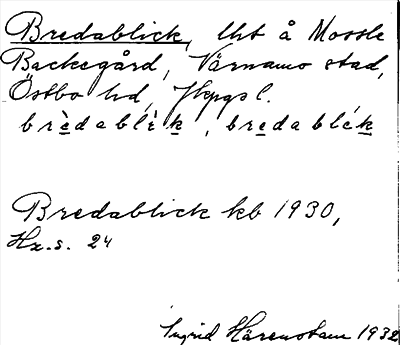 Bredablick, lht å Mossle
Backegård, Värnamo stad,
Östbo hd, Jkpgs l.
brèdablìk, bredablék
Bredablick kb 1930,
Hz.s. 24
Ingrid Härenstam 1932